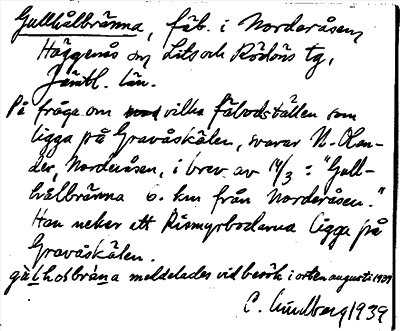 Gullhålbränna, fäb. i Norderåsen,
Häggenås sn, Lits och Rödöns tg,
Jämtl. län.
På fråga om vilka fäbodställen som
ligga på Gravåskälen, svarar N. Olan-
der, Norderåsen, i brev av 14/3 : "Gull-
hålbränna 6. km från Norderåsen."
Han neker att Rismyrbodarna ligga på
Gravåskälen.
meddelades vid besök i orten augusti 1939
C. Lindberg 1939